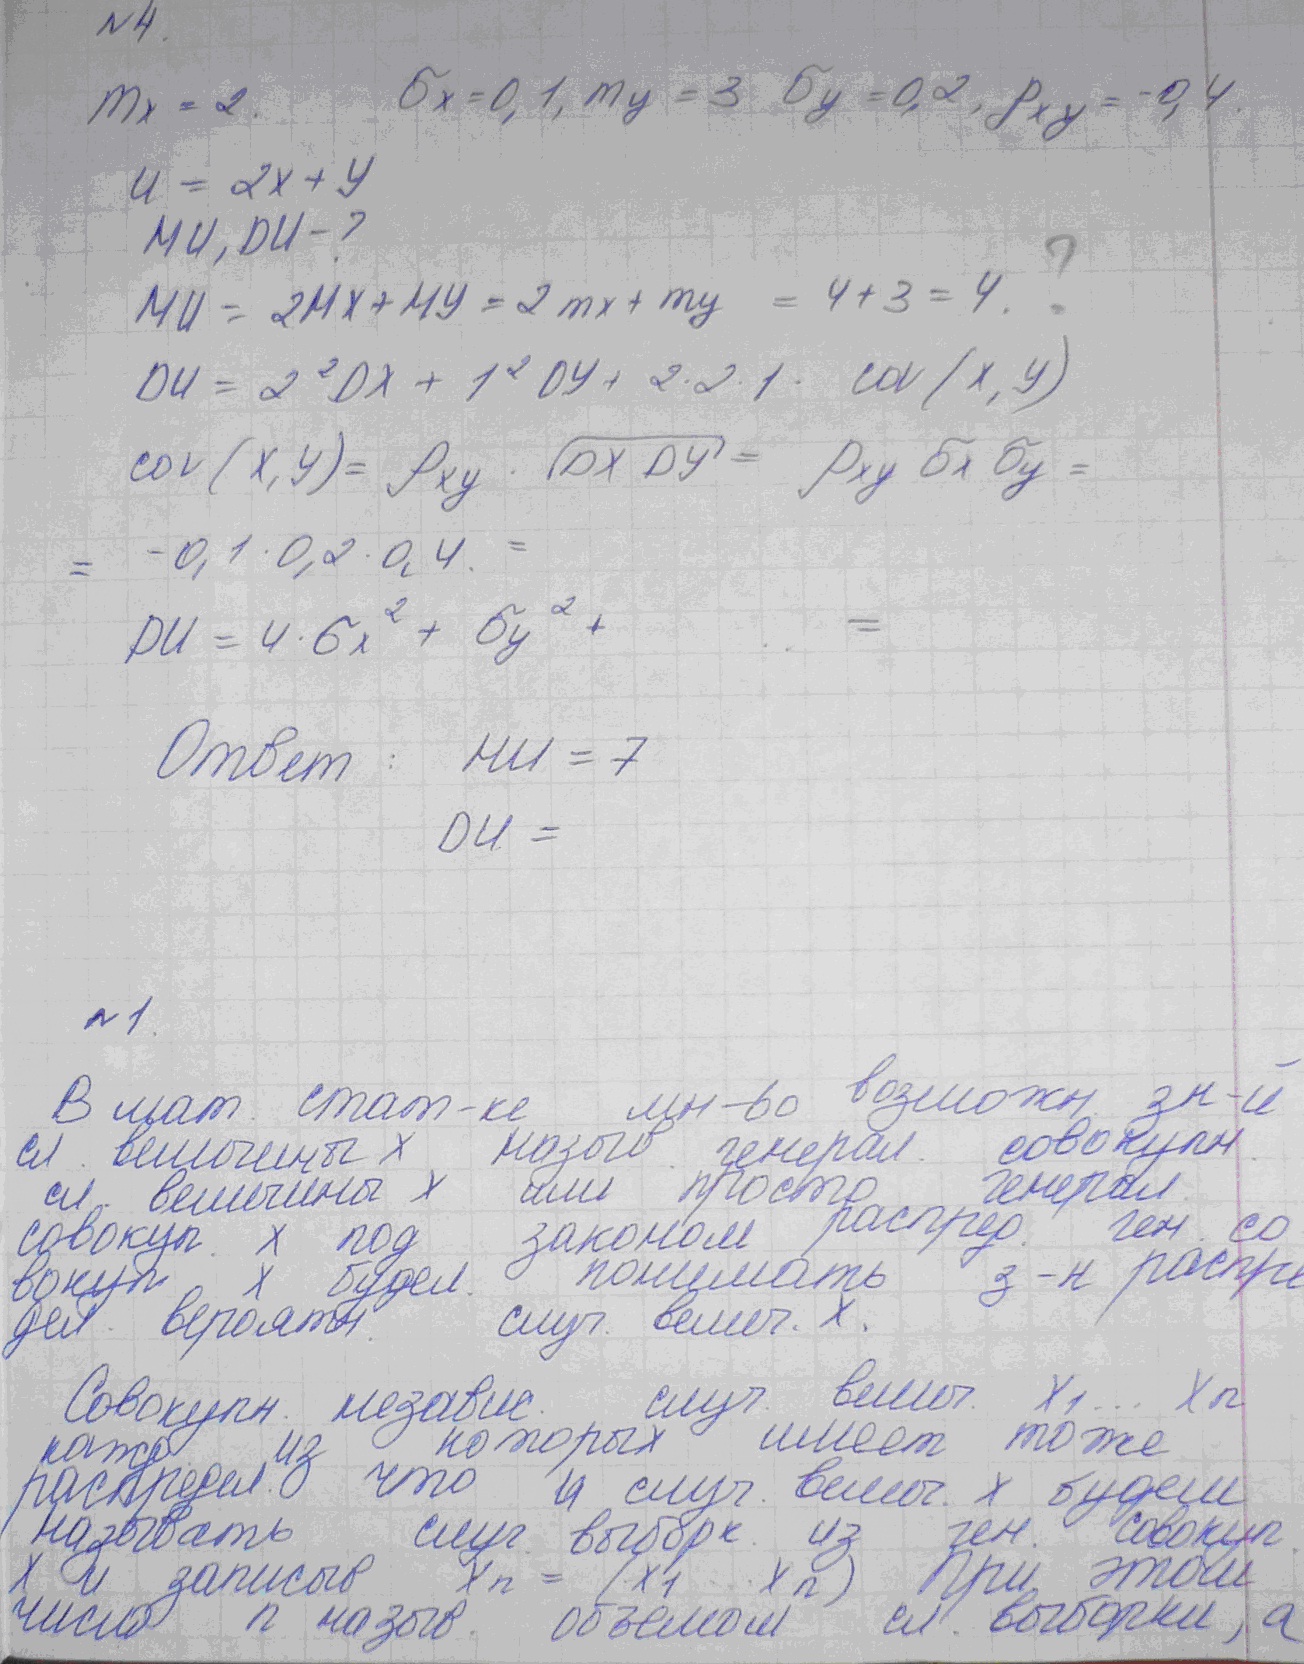 №4.
mx = 2. σx = 0,1, my = 3 σy = 0,2, ρxy = -0,4.
U = 2X + Y
MU, DU - ?
MU = 2MX + MY = 2mx + my = 4 + 3 = 4. ?
DU = 2² DX + 1² DY + 2·2·1· cov(X, Y)
cov(X, Y) = ρxy · √DX DY = ρxy σx σy =
= -0,1·0,2·0,4. =
DU = 4·σx² + σy² + =
Ответ: MU = 7
DU =
№1.
В мат. стат-ке мн-во возможн. зн-й
сл. величины X назыв. генерал. совокупн.
сл. величины X или просто генерал.
совокуп. X под законом распред. ген. со
вокуп X будем. понимать з-н распре
дел. вероятн. случ. велич. X.
Совокупн. независ. случ. велич. X1 ... Xn
кажд. из которых имеет тоже
распредел. что и случ. велич. X будем
называть случ. выборк. из ген. совокуп.
X и записыв Xn = (X1 ... Xn) При этом
число n назыв. объемом сл. выборки, а